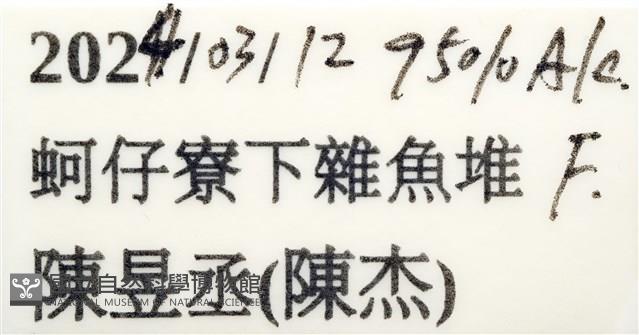 2024/03/12 95% Alc.
蚵仔寮下雜魚堆 F.
陳昱丞(陳杰)
國立自然科學博物館
NATIONAL MUSEUM OF NATURAL SCIENCE